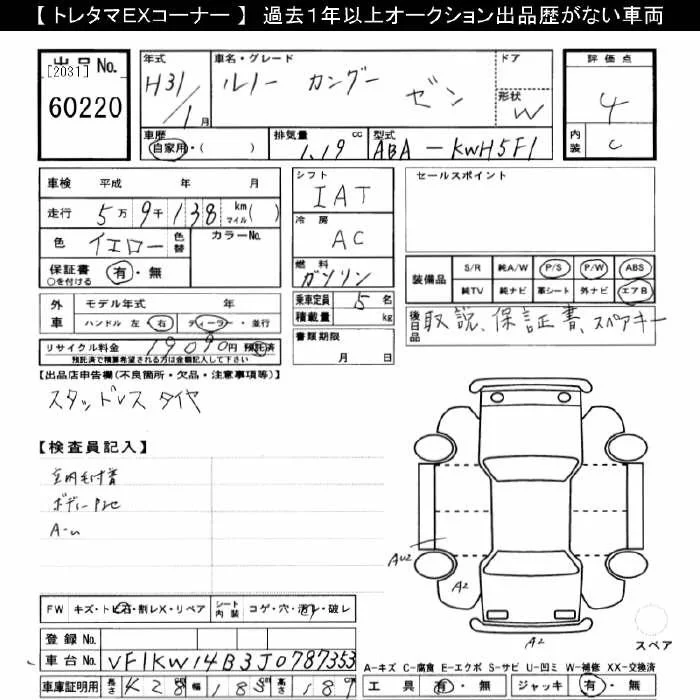 【 トレタマEXコーナー 】 過去1年以上オークション出品歴がない車両
出品No.
[2031]
60220
年式
H31/1月
車名・グレード
ルノー カングー ゼン
ドア
形状
W
評価点
4
内装
C
車歴
自家用・( )
排気量
1.19 cc
型式
ABA-KWH5F1
車検 平成 年 月
走行 5万9千138 km マイル( )
色 イエロー 色替
カラーNo.
保証書 有・無
○を付ける
シフト
IAT
冷房
AC
燃料
ガソリン
乗車定員 5名
積載量 kg
書類期限
月 日
セールスポイント
装備品
S/R 純A/W P/S P/W ABS
純TV 純ナビ 革シート 外ナビ エアB
後日品
取説、保証書、スペアキー
外車
モデル年式 年
ハンドル 左・右 ディーラー・並行
リサイクル料金 19090円 預託済
預託済で積算希望される方は金額記入して下さい
【出品店申告欄(不良箇所・欠品・注意事項等)】
スタッドレスタイヤ
【検査員記入】
A-u
FW キズ・トビ石・割レX・リペア
シート内装 コゲ・穴・汚レ・破レ
登録No.
車台No. VF1KW14B3J0787353
車庫証明用 長さ 428 幅 183 高さ 181
AU2
A2
A2
スペア
A-キズ C-腐食 E-エクボ S-サビ U-凹ミ W-補修 XX-交換済
工具 有・無 ジャッキ 有・無